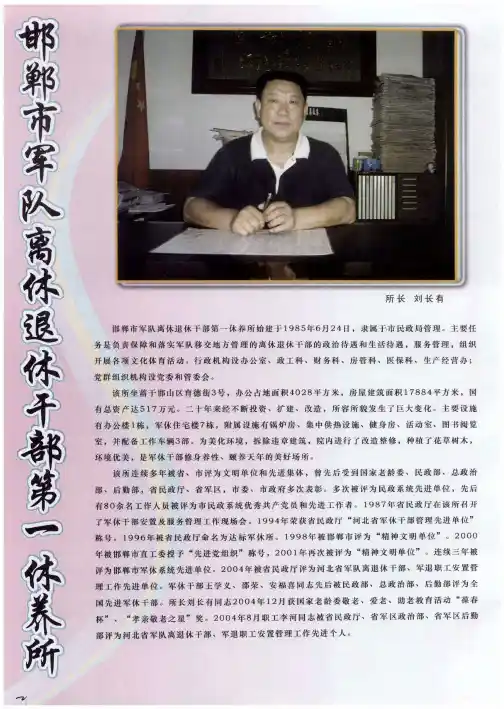 邯郸市军队离休退休干部第一休养所
所长 刘长有
邯郸市军队离休退休干部第一休养所始建于1985年6月24日，隶属于市民政局管理。主要任
务是负责保障和落实军队移交地方管理的离休退休干部的政治待遇和生活待遇，服务管理，组织
开展各项文化体育活动。行政机构设办公室、政工科、财务科、房管科、医保科、生产经营办；
党群组织机构设党委和管委会。
该所坐落于邯山区育德街3号，办公占地面积4028平方米，房屋建筑面积17884平方米，国
有总资产达517万元。二十年来经不断投资、扩建、改造，所容所貌发生了巨大变化。主要设施
有办公楼1栋，军休住宅楼7栋，附属设施有锅炉房、集中供热设施、健身房、活动室、图书阅览
室，并配备工作车辆3部。为美化环境，拆除违章建筑，院内进行了改造整修，种植了花草树木，
环境优美，是军休干部修身养性、颐养天年的美好场所。
该所连续多年被省、市评为文明单位和先进集体，曾先后受到国家老龄委、民政部、总政治
部、后勤部，省民政厅、省军区，市委、市政府多次表彰。多次被评为民政系统先进单位，先后
有80余名工作人员被评为市民政系统优秀共产党员和先进工作者。1987年省民政厅在该所召开
了军休干部安置及服务管理工作现场会。1994年荣获省民政厅“河北省军休干部管理先进单位”
称号。1996年被省民政厅命名为达标军休所。1998年被邯郸市评为“精神文明单位”。2000
年被邯郸市直工委授予“先进党组织”称号，2001年再次被评为“精神文明单位”。连续三年被
评为邯郸市军休系统先进单位。2004年被省民政厅评为河北省军队离退休干部、军退职工安置管
理工作先进单位。军休干部王学文、邵荣、安福喜同志先后被民政部、总政治部、后勤部评为全
国先进军休干部。所长刘长有同志2004年12月获国家老龄委敬老、爱老、助老教育活动“葆春
杯”、“孝亲敬老之星”奖。2004年8月职工李河同志被省民政厅、省军区政治部、省军区后勤
部评为河北省军队离退休干部、军退职工安置管理工作先进个人。
2